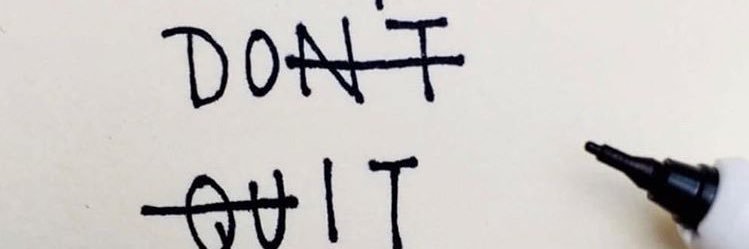 DON'T
QUIT